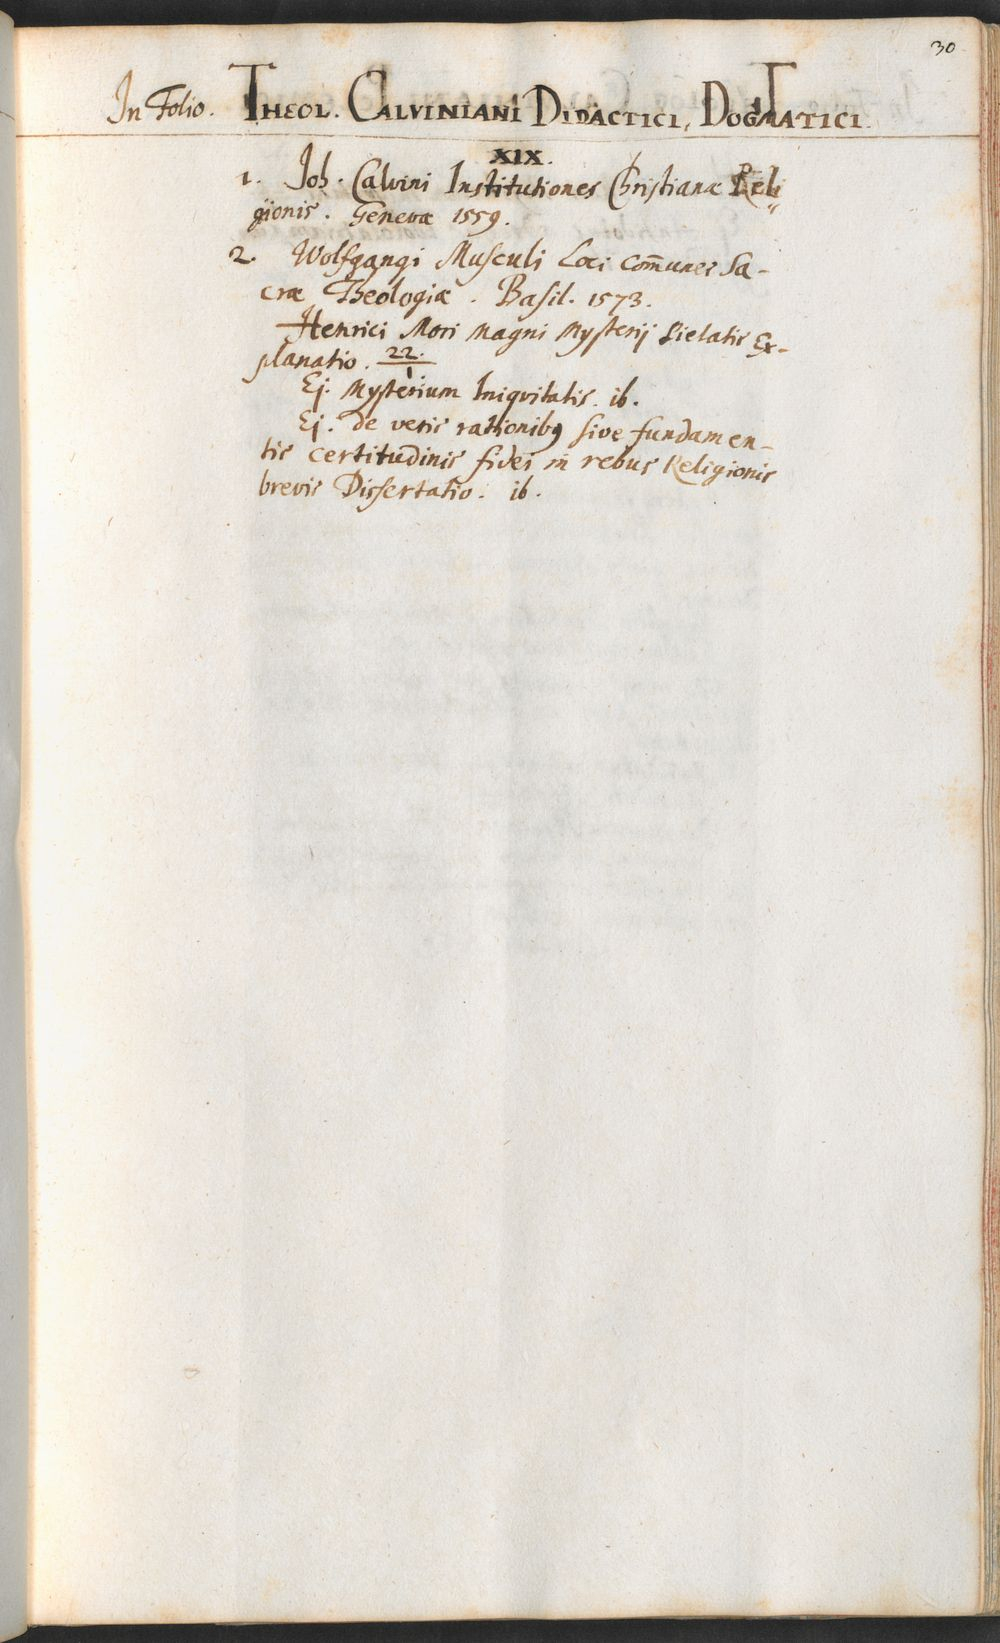 30
In Folio. THEOL. CALVINIANI DIDACTICI, DOGMATICI.
XIX.
1. Joh. Calvini Institutiones Christianæ Reli
gionis. Genevæ 1559.
2. Wolfgangi Musculi Loci com̄unes Sa-
cræ Theologiæ. Basil. 1573.
Henrici Mori Magni Mysterij Pietatis Ex-
planatio. 22./1
Ej. Mysterium Iniqvitatis. ib.
Ej. de veris rationibꝰ sive fundamen-
tis certitudinis fidei in rebus Religionis
brevis Dissertatio. ib.